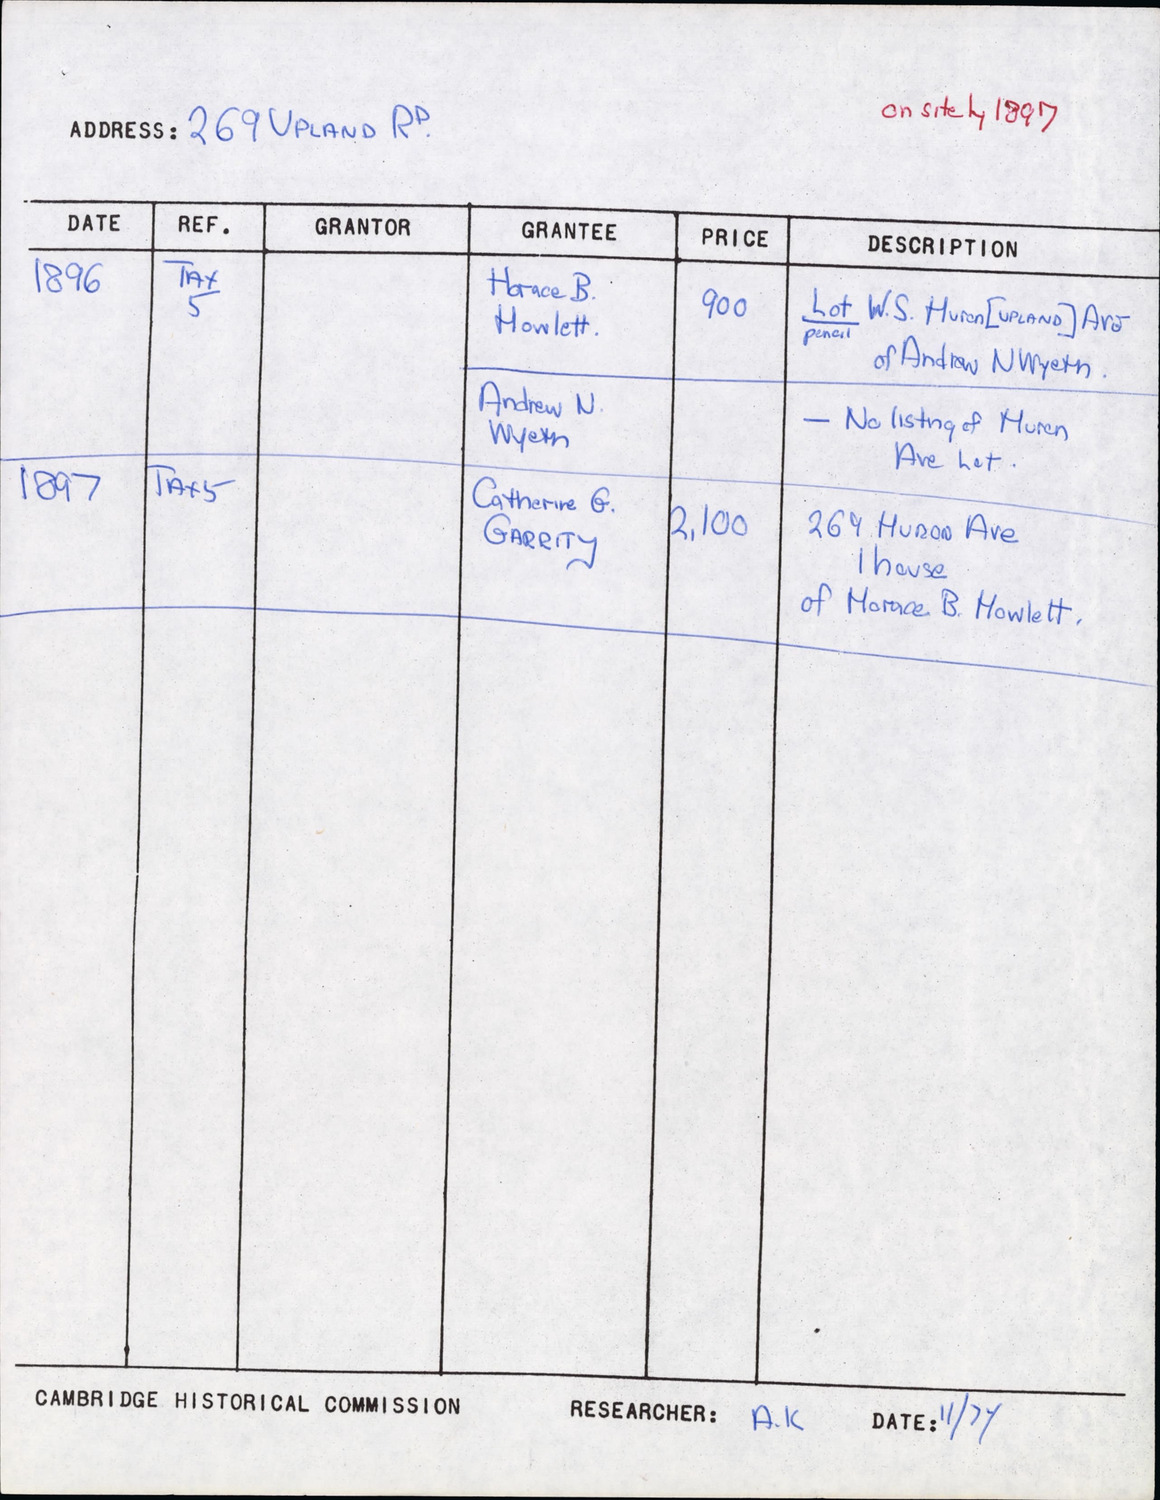 on site by 1897
ADDRESS: 269 UPLAND RD.
DATE REF. GRANTOR GRANTEE PRICE DESCRIPTION
1896 TAX 5 Horace B. Howlett. 900 Lot W.S. Huron [UPLAND] Ave
pencil
of Andrew N Wyeth.
Andrew N. Wyeth — No listing of Huron
Ave Lot.
1897 TAX 5 Catherine G. GARRITY 2,100 269 HURON Ave
1 house
of Horace B. Howlett.
CAMBRIDGE HISTORICAL COMMISSION RESEARCHER: A.K DATE: 11/74